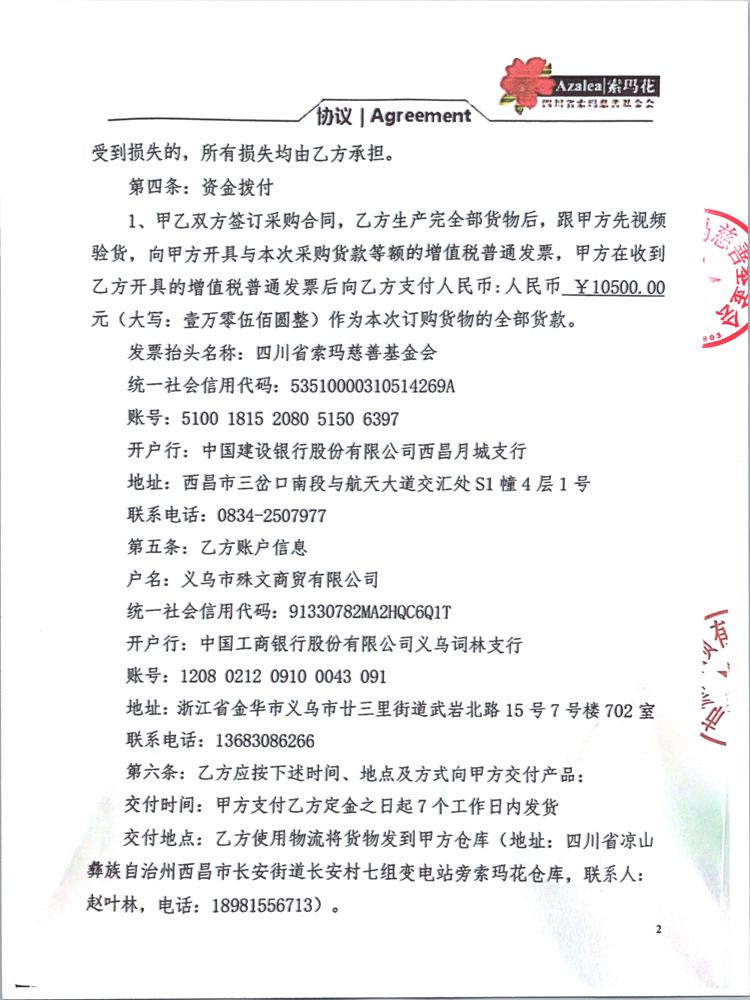 Azalea|索玛花
四川省索玛慈善基金会
协议 | Agreement
受到损失的，所有损失均由乙方承担。
第四条：资金拨付
1、甲乙双方签订采购合同，乙方生产完全部货物后，跟甲方先视频
验货，向甲方开具与本次采购货款等额的增值税普通发票，甲方在收到
乙方开具的增值税普通发票后向乙方支付人民币：人民币 ￥10500.00
元（大写：壹万零伍佰圆整）作为本次订购货物的全部货款。
发票抬头名称：四川省索玛慈善基金会
统一社会信用代码：53510000310514269A
账号：5100 1815 2080 5150 6397
开户行：中国建设银行股份有限公司西昌月城支行
地址：西昌市三岔口南段与航天大道交汇处 S1 幢 4 层 1 号
联系电话：0834-2507977
第五条：乙方账户信息
户名：义乌市殊文商贸有限公司
统一社会信用代码：91330782MA2HQC6Q1T
开户行：中国工商银行股份有限公司义乌词林支行
账号：1208 0212 0910 0043 091
地址：浙江省金华市义乌市廿三里街道武岩北路 15 号 7 号楼 702 室
联系电话：13683086266
第六条：乙方应按下述时间、地点及方式向甲方交付产品：
交付时间：甲方支付乙方定金之日起 7 个工作日内发货
交付地点：乙方使用物流将货物发到甲方仓库（地址：四川省凉山
彝族自治州西昌市长安街道长安村七组变电站旁索玛花仓库，联系人：
赵叶林，电话：18981556713）。
2
玛慈善基金会
803